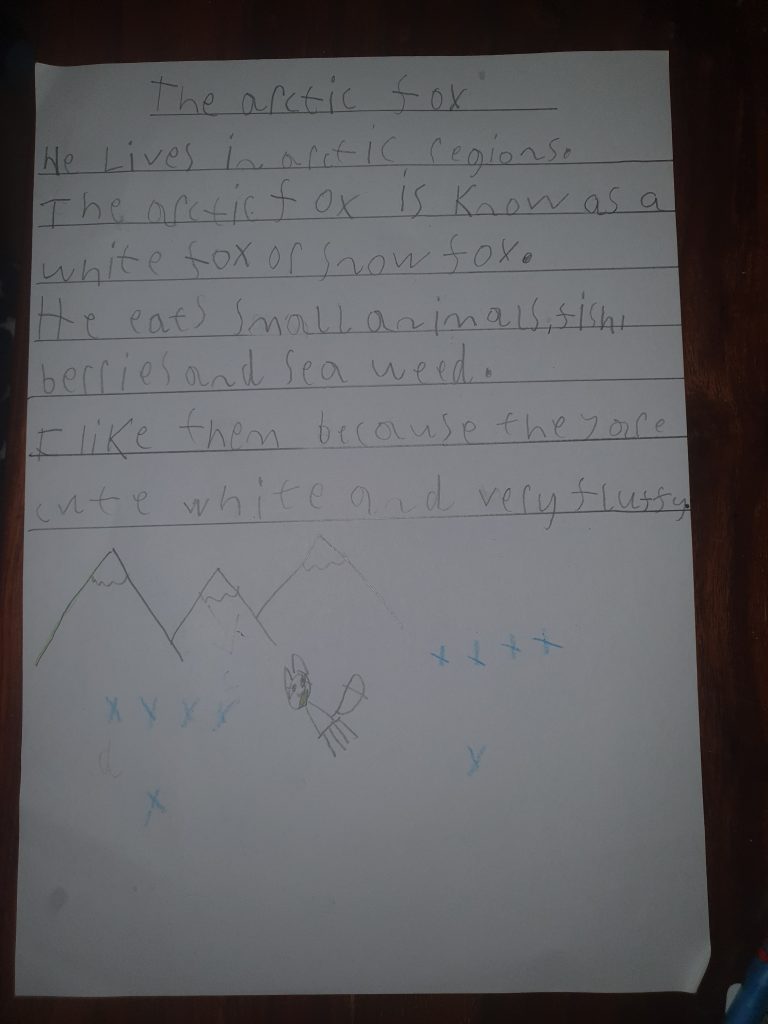 The arctic fox
He Lives in arctic regions.
The arctic fox is Know as a
white fox or snow fox.
He eats small animals, fish,
berries and sea weed.
I like them because they are
cute white and very fluffy.